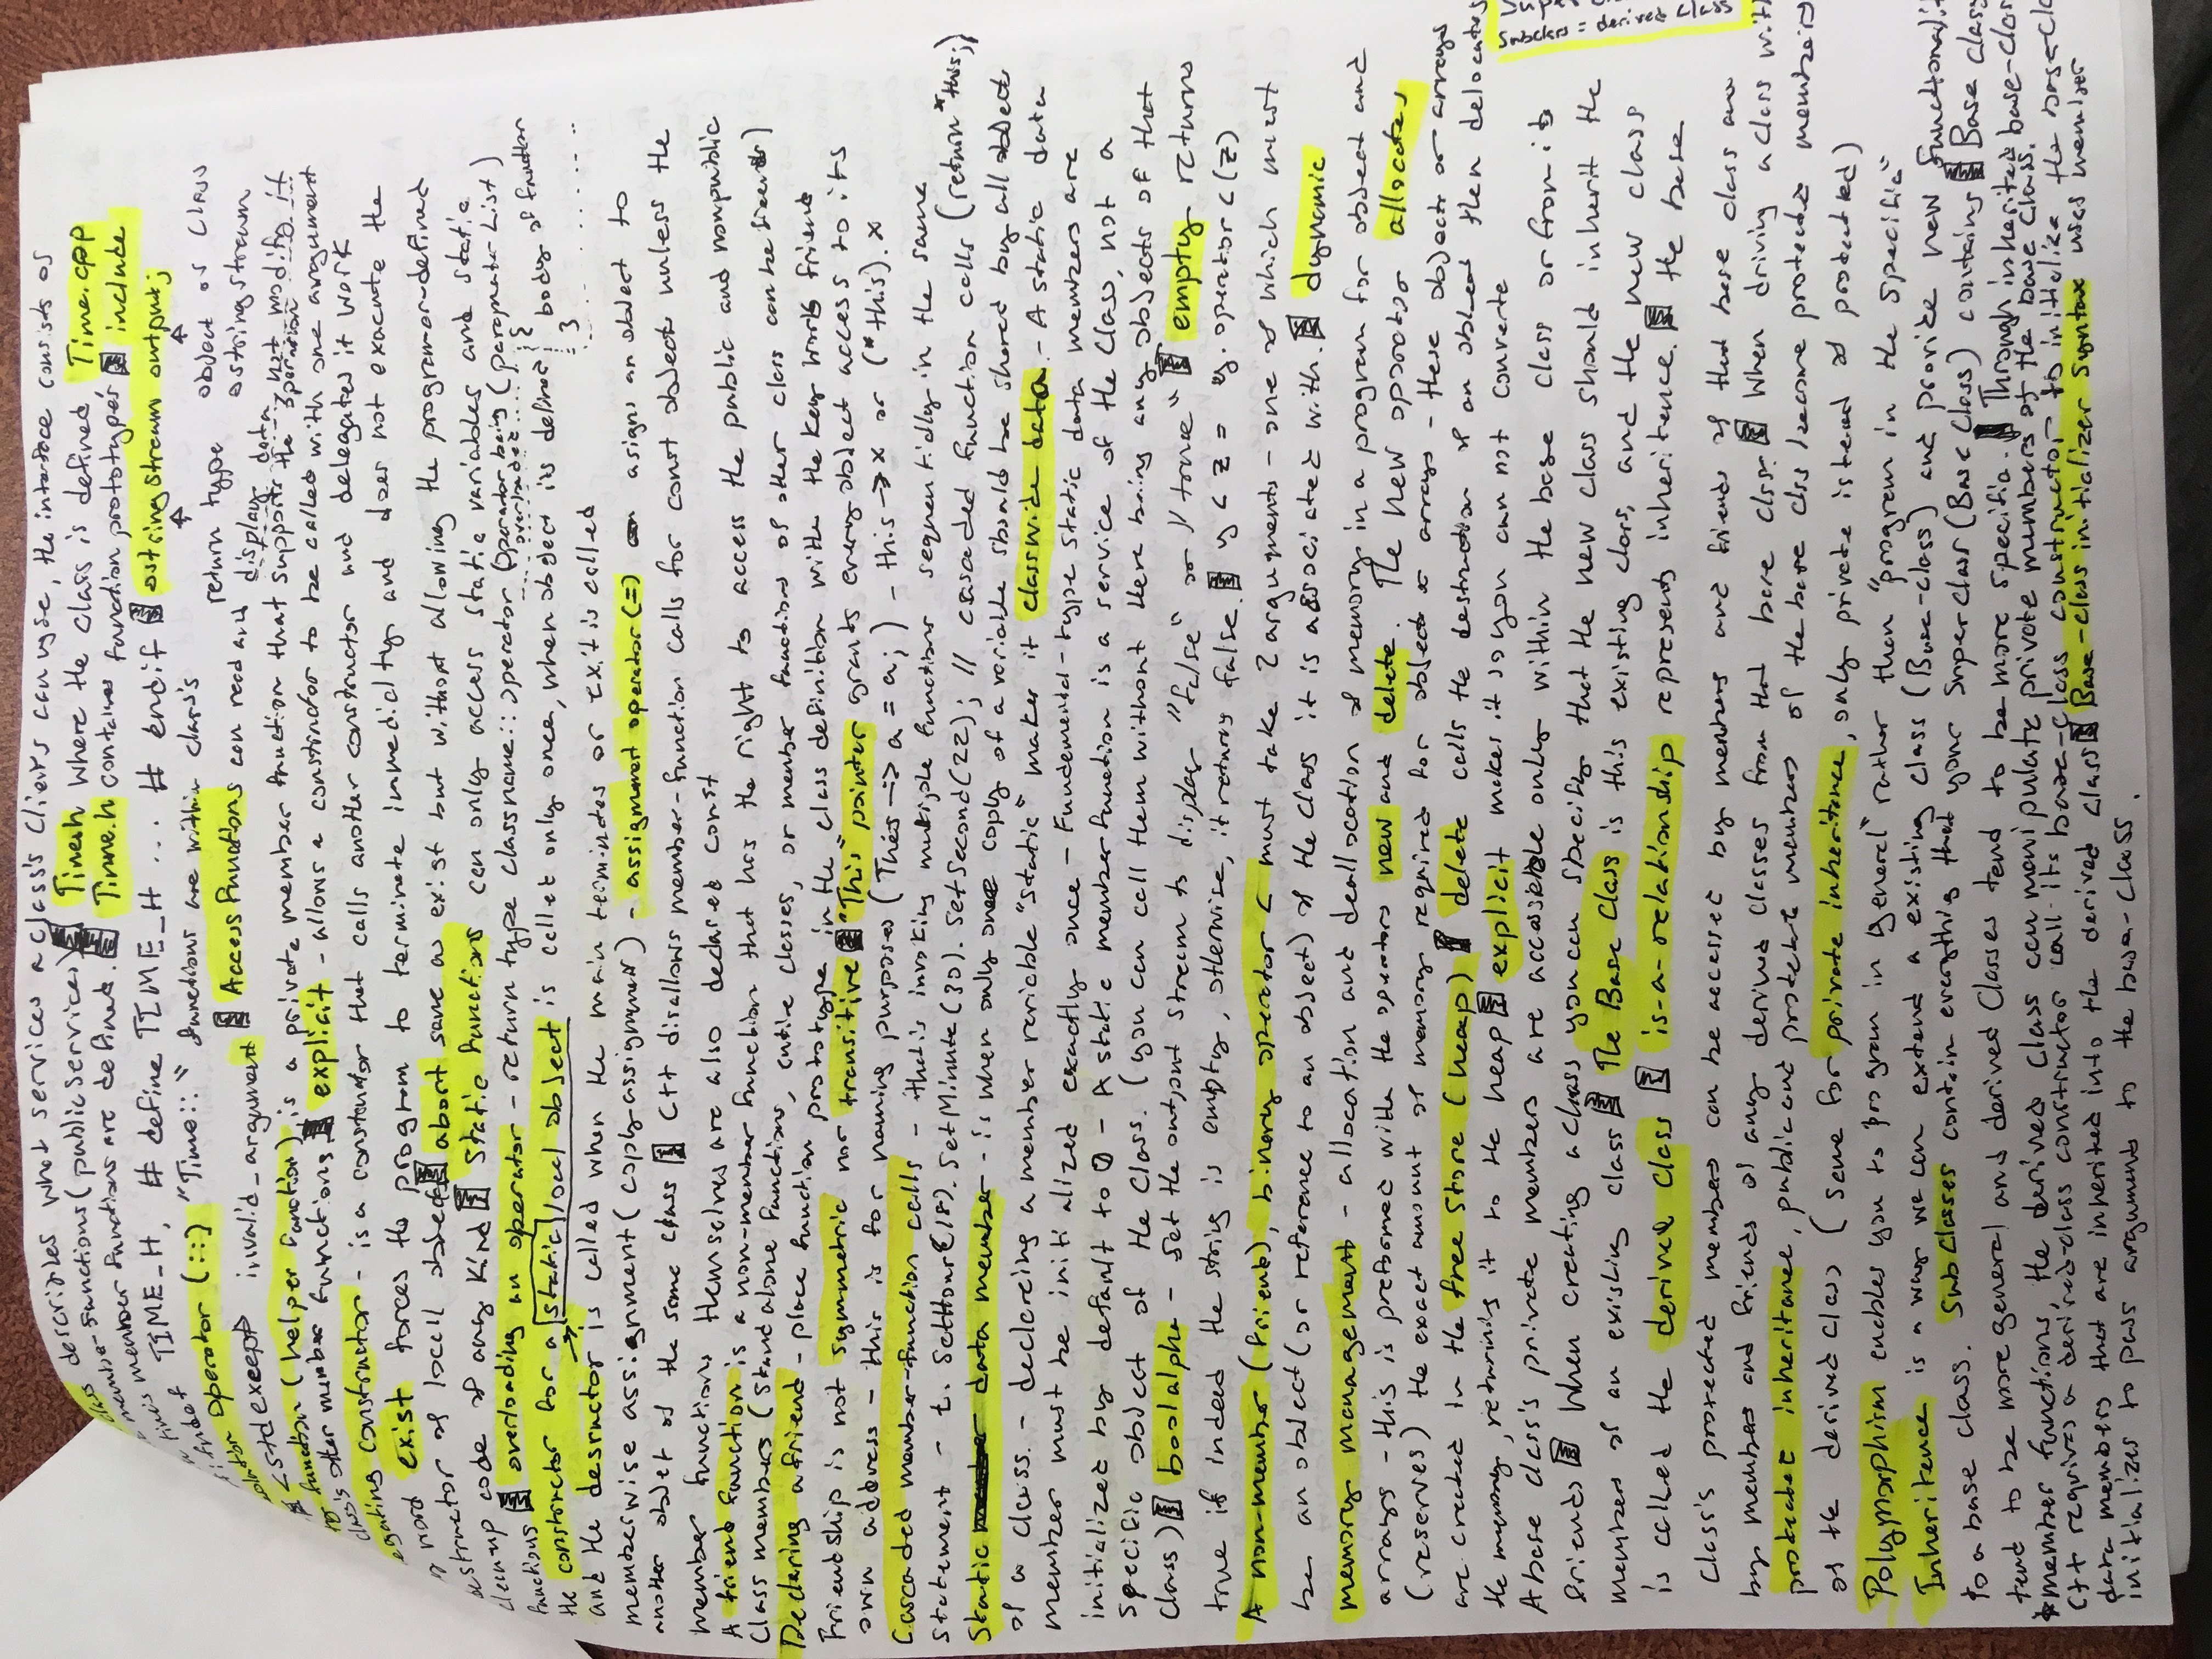 class describes what services a class's clients can use, the interface consists of
member-functions (public services) Time.h where the class is defined, Time.cpp
member functions are defined. Time.h contains function prototypes, include
TIME_H, # define TIME_H ... # endif ostringstream output;
operator (::) "Time::" functions are within class's return type object of class
<stdexcept> invalid_argument Access Functions can read and display data ostringstream
function (helper function) is a private member function that supports the operation
class's other member functions explicit - allows a constructor to be called with one argument
egating constructor - is a constructor that calls another constructor and delegates it work
word exist forces the program to terminate immedialty and does not execute the
destructor of locall abort same as exist but without allowing the program-defined
cleanup code of any kind Static functions can only access static variables and static
functions overloading an operator - return type classname:: operator (operator being overloaded) (perameter list)
{ body of function }
the constorctor for a static/local object is callet only once, when object is defined
and the desructor is called when the main terminates or exit is called
memberwise assignment (copy assignment) - assignment operator (=) assigns an object to
another objet of the same class C++ disallows member-function calls for const objects unless the
member functions themselves are also declared const
A friend function is a non-member function that has the right to access the public and nonpublic
class members (stand alone functions, entire classes, or member functions of other class can be friends)
Declaring a friend - place function prototype in the class definition with the key work friend
Friendship is not symmetric nor transitive "This" pointer grants every object access to its
own address - this is for naming purposes (This -> a = a;) - this -> x or (*this).x
Cascaded member-function calls - that is invoking multiple functions sequentially in the same
statement - t. SetHour(18). SetMinute(30). SetSecond(22); // casaded function calls (return *this;)
Static data member - is when only one copy of a variable should be shared by all object
of a class. - declearing a member veriable "static" makes it classwide data - A static data
member must be initialized exactly once - Fundemental-type static data members are
initialized by default to 0 - A static member function is a service of the class, not a
specific object of the class. (you can call them without there being any objects of that
class) boolalpha - set the output stream to display "false" or "true" empty returns
true if indeed the string is empty, otherwise, it returns false. y < z = y.operator<(z)
A non-member (friend), binary operator < must take 2 arguments - one of which must
be an object (or reference to an object) of the class it is associated with. dynamic
memory management - allocation and deallocation of memory in a program for object and
arrays - this is preformed with the operators new and delete. The new operator allocates
(reserves) the exact amount of memory required for object or arrays - these objects or arrays
are created in the free store (heap) delete calls the destructor of an object then delocates
the memory, returning it to the heap explicit makes it so you can not converte
Subclass = derived class
A base class's private members are accessible only within the base class or from its
friends When creating a class you can specify that the new class should inherit the
members of an existing class The Base Class is this existing class, and the new class
is called the derived class is-a-relationship represents inheritence. the base
class's protected members can be accessed by members and friends of that base class and
by members and friends of any derived classes from that base class. When driving a class with
protected inheritance, public and protected members of the base class become protected members
of the derived class (same for private inheritance, only private istead of protected)
Polymorphism enables you to program in "general" rather then "program in the specific"
Inheritence is a way we can extend a existing class (Base-class) and provide new functionality
to a base class. Subclasses contain everything that your Superclass (Base class) contains Base class
tend to be more general and derived classes tend to be more specific. Through inherited base-class
member functions, the derived class can manipulate private members of the base class.
C++ requires a derived-class constructor call its base-class constructor to initialize the base-class
data members that are inherited into the derived class Base-class initializer syntax uses member
initializes to pass arguments to the base-class.